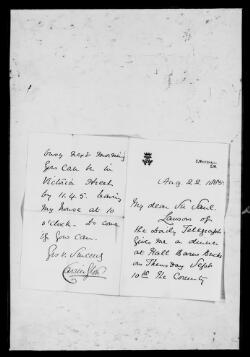 Aug 22 1885
My dear Sir Saul.
Lawson of
the Daily Telegraph
gives me a dinner
at Hall Barn Bucks
on Thursday Sept
10th The County
away next morning
you can be in
Victoria Street
by 11.45. leaving
my house at 10
o'clock. Do come
if you can.
Yrs v. Sincerely
Carington